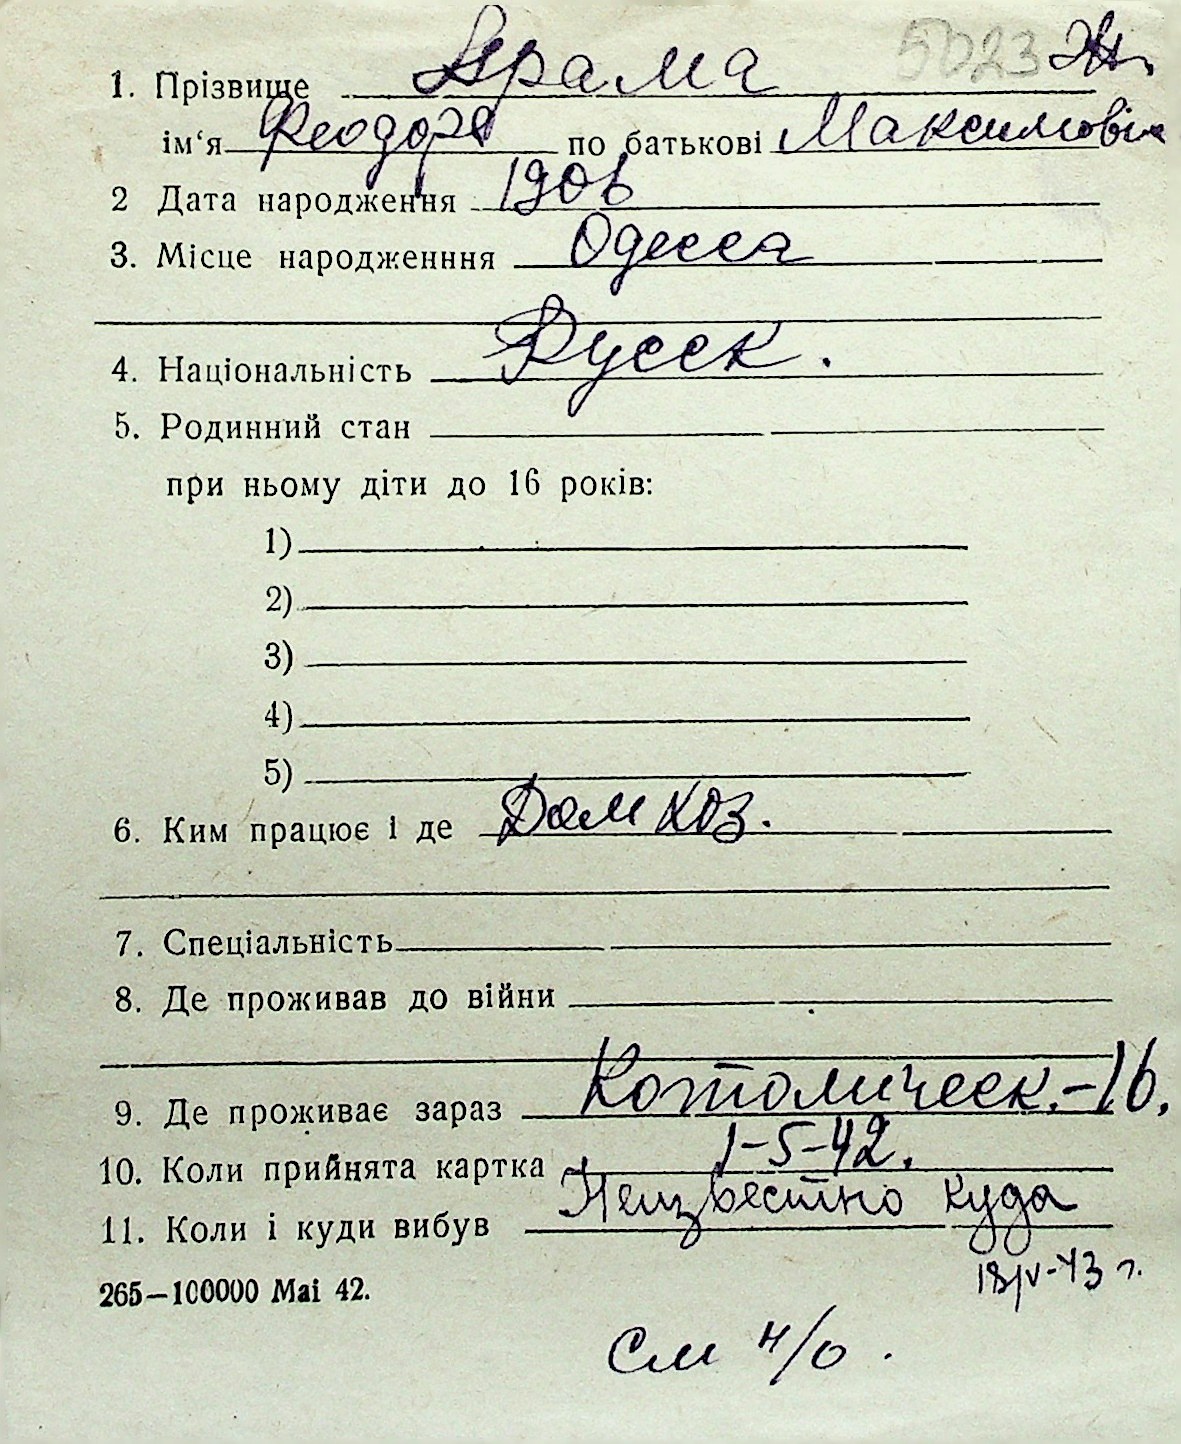 5023
1. Прізвище Драма
ім‘я Феодора по батькові Максимовна
2 Дата народження 1906
3. Місце народженння Одесса
4. Національність Русск.
5. Родинний стан
при ньому діти до 16 років:
1)
2)
3)
4)
5)
6. Ким працює і де Дом хоз.
7. Спеціальність
8. Де проживав до війни
9. Де проживає зараз Котолическ.-16.
10. Коли прийнята картка 1-5-42.
11. Коли і куди вибув Неизвестно куда
18/IV-43 г.
265—100000 Маі 42.
См н/о.